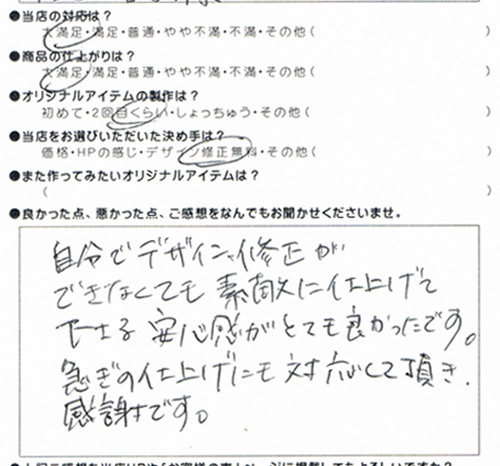 ●当店の対応は？
大満足・満足・普通・やや不満・不満・その他（　）
●商品の仕上がりは？
大満足・満足・普通・やや不満・不満・その他（　）
●オリジナルアイテムの製作は？
初めて・2回目くらい・しょっちゅう・その他（　）
●当店をお選びいただいた決め手は？
価格・HPの感じ・デザイン修正無料・その他（　）
●また作ってみたいオリジナルアイテムは？
（　）
●良かった点、悪かった点、ご感想をなんでもお聞かせくださいませ。
自分でデザインや修正が
できなくても素敵に仕上げて
下さる安心感がとても良かったです。
急ぎの仕上げにも対応して頂き、
感謝です。